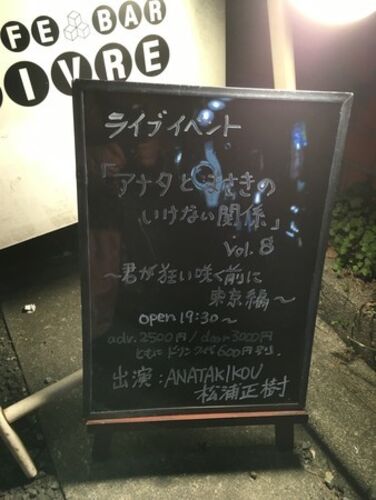 FE BAR
IVRE
ライブイベント
「アナタとまさきの
いけない関係」
vol.8
～君が狂い咲く前に
東京編～
open 19:30～
adv.2500円/door3000円
ともに ドリンク代600円
出演:ANATAKIKOU
松浦正樹